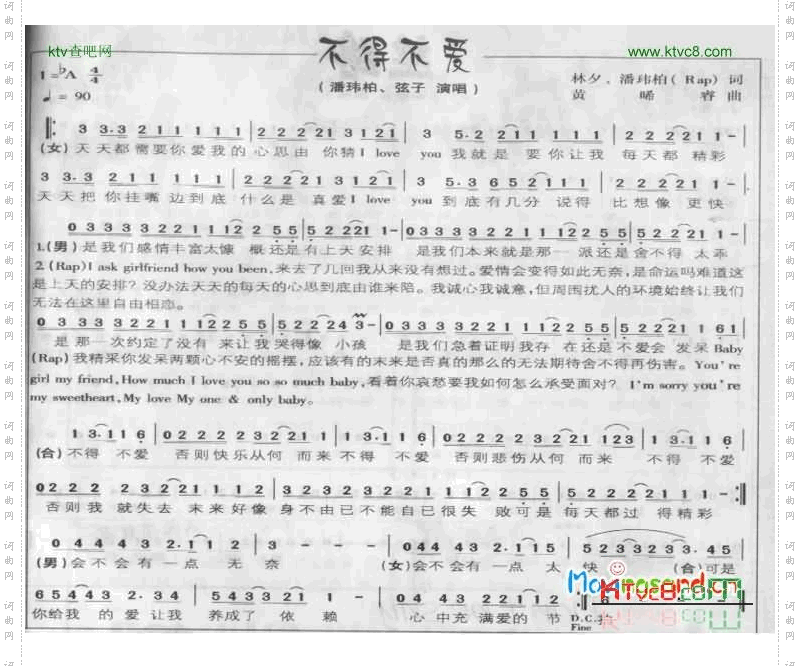 ktv查吧网
不得不爱
www.ktvc8.com
1=♭A 4/4
(潘玮柏、弦子 演唱)
林夕、潘玮柏(Rap) 词
♩= 90
黄 晞 睿 曲
3 3.3 2 1 1 1 1 1 | 2 2 2 2 21 3 1 21 | 3 5.2 2 1 1 1 1 1 | 2 2 2 21 1 - |
(女)天天都需要你爱我的心思由 你猜I love you我就是 要你让我 每天都 精彩
3 3.3 2 1 1 1 1 1 | 2 2 2 2 21 3 1 21 | 3 5.3 6 5 2 1 1 1 | 2 2 2 21 1 - |
天天把你挂嘴边到底 什么是 真爱I love you到底有几分 说得 比想像 更快
0 3 3 3 3 3 2 2 1 1 1 2 2 5 5 | 5 2 2 2 21 1 - | 0 3 3 3 3 3 2 2 1 1 1 2 2 5 5 | 5 2 2 2 21 1 - |
1.(男)是我们感情丰富太慷 概还是有上天安排 是我们本来就是那一 派还是舍不得 太乖
2.(Rap)I ask girlfriend how you been,来去了几回我从来没有想过。爱情会变得如此无奈,是命运吗难道这
是上天的安排? 没办法天天的每天的心思到底由谁来陪。我诚心我诚意,但周围扰人的环境始终让我们
无法在这里自由相恋。
0 3 3 3 3 3 2 2 1 1 1 2 2 5 5 | 5 2 2 2 24 3 - | 0 3 3 3 3 3 2 2 1 1 1 2 2 5 5 | 5 2 2 2 21 1 61 |
是 那 一次约定了没有 来让我 哭得像 小孩 是我们急着证明我存 在还是不爱会 发呆Baby
(Rap)我精采你发呆两颗心不安的摇摆,应该有的未来是否真的那么的无法期待舍不得再伤害。You're
girl my friend,How much I love you so so much baby,看着你哀愁要我如何怎么承受面对? I'm sorry you're
my sweetheart,My love My one & only baby。
1 3.1 1 6 | 0 2 2 2 2 3 2 2 1 1 | 1 3.1 1 6 | 0 2 2 2 2 3 2 21 123 | 1 3.1 1 6 |
(合)不得 不爱 否则快乐从何 而来不得 不爱 否则悲伤从何 而来 不得 不爱
0 2 2 2 2 3 2 21 1 1 2 | 3 2 3 2 3 2 2 1 1 1 2 2 5 5 | 5 2 2 2 21 1 - :‖
否则 我 就失去 未来好像 身不由已不能自已很失 败可是 每天都过 得精彩
0 4 4 4 3 2.1 1 2 | 3 - - - | 0 44 43 2.1 15 | 5 2 3 3 2 3 2 3. 45 |
(男)会不会有一点 无 奈 (女)会不会有一点 太 快 (合)可是
你给我 的 爱 让我 养成了 依 赖 心中充 满爱的 节
D.C.
Fine
KTvc8.com